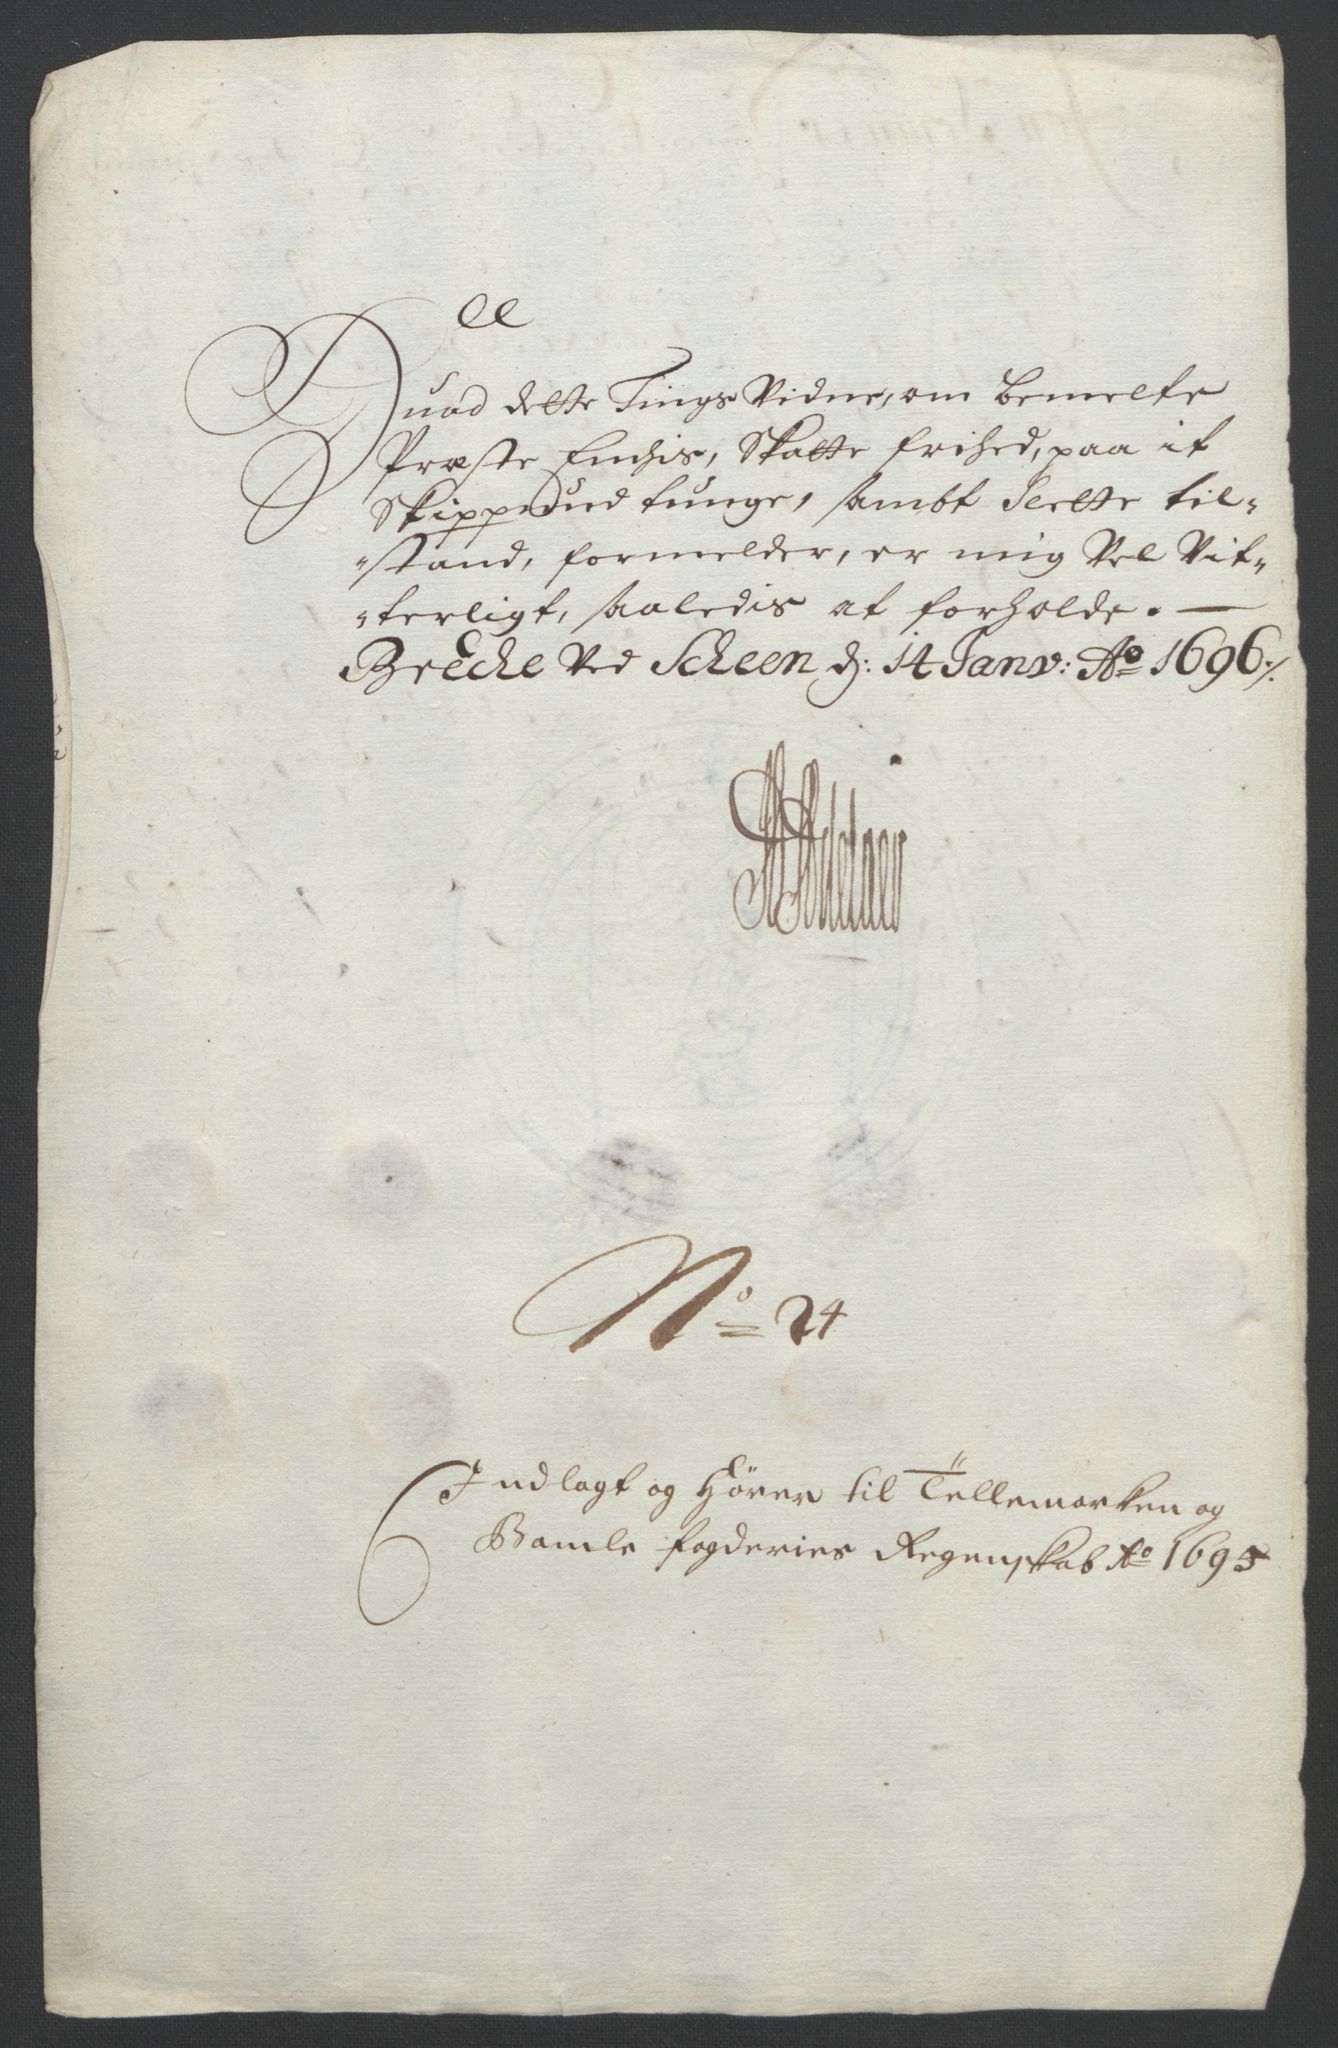 Huad dette Tings Vidne, om bemelte
Præste Enchis, Skatte frihed, paa it
Skippund tunge, sambt Slette til„
„stand, formelder, er mig Vel Vit„
„terligt, saaledis at forholde. —
BrEche Ved Scheen d: 14 Janv: Ao 1696 ./.
No = 24
Indlagt og Hører til Tellemarken og
Bamle fogderies Regenskab Ao 1695